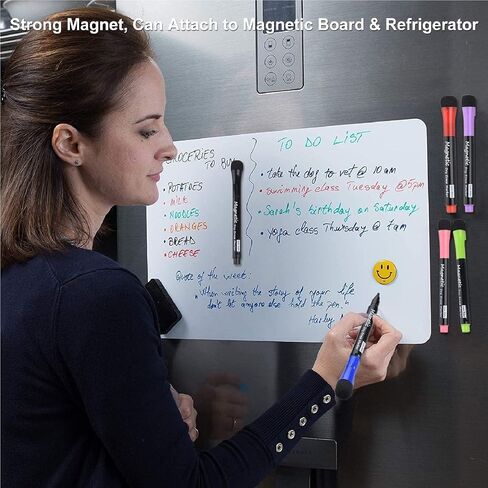 Strong Magnet, Can Attach to Magnetic Board & Refrigerator
GROCERIES
TO BUY
• POTATOES
• MILK
• NOODLES
• ORANGES
• BREAD
• CHEESE
TO DO LIST
• Take the dog to vet @ 10 am
• Swimming class Tuesday @5pm
• Sarah's birthday on Saturday
• Yoga class Thursday @ 7am
Quote of the week:
"When writing the story of your life
don't let anyone else hold the pen."
Harley
Magnetic
Magnetic
Magnetic
Magnetic
Magnetic